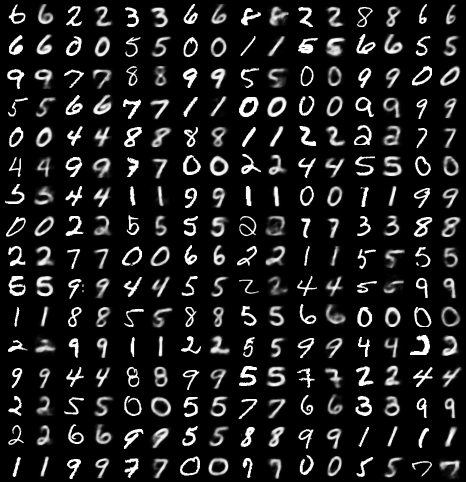 6 6 2 2 3 3 6 6 8 8 2 2 8 8 6 6
6 6 0 0 5 5 0 0 1 1 5 5 6 6 5 5
9 9 7 7 8 8 9 9 5 5 0 0 9 9 0 0
5 5 6 6 7 7 1 1 0 0 0 0 9 9 9 9
0 0 4 4 8 8 8 8 1 1 2 2 2 2 7 7
4 4 9 9 7 7 0 0 2 2 4 4 5 5 0 0
5 5 4 4 1 1 9 9 1 1 0 0 1 1 9 9
0 0 2 2 5 5 5 5 2 2 7 7 3 3 8 8
2 2 7 7 0 0 6 6 2 2 1 1 5 5 5 5
5 5 9 9 4 4 5 5 2 2 4 4 5 5 9 9
1 1 8 8 5 5 8 8 5 5 6 6 0 0 0 0
2 2 9 9 1 1 2 2 5 5 9 9 4 4 2 2
9 9 4 4 8 8 9 9 5 5 7 7 2 2 4 4
2 2 5 5 0 0 5 5 7 7 6 6 3 3 9 9
2 2 6 6 9 9 5 5 8 8 9 9 1 1 1 1
1 1 9 9 7 7 0 0 7 7 0 0 5 5 7 7